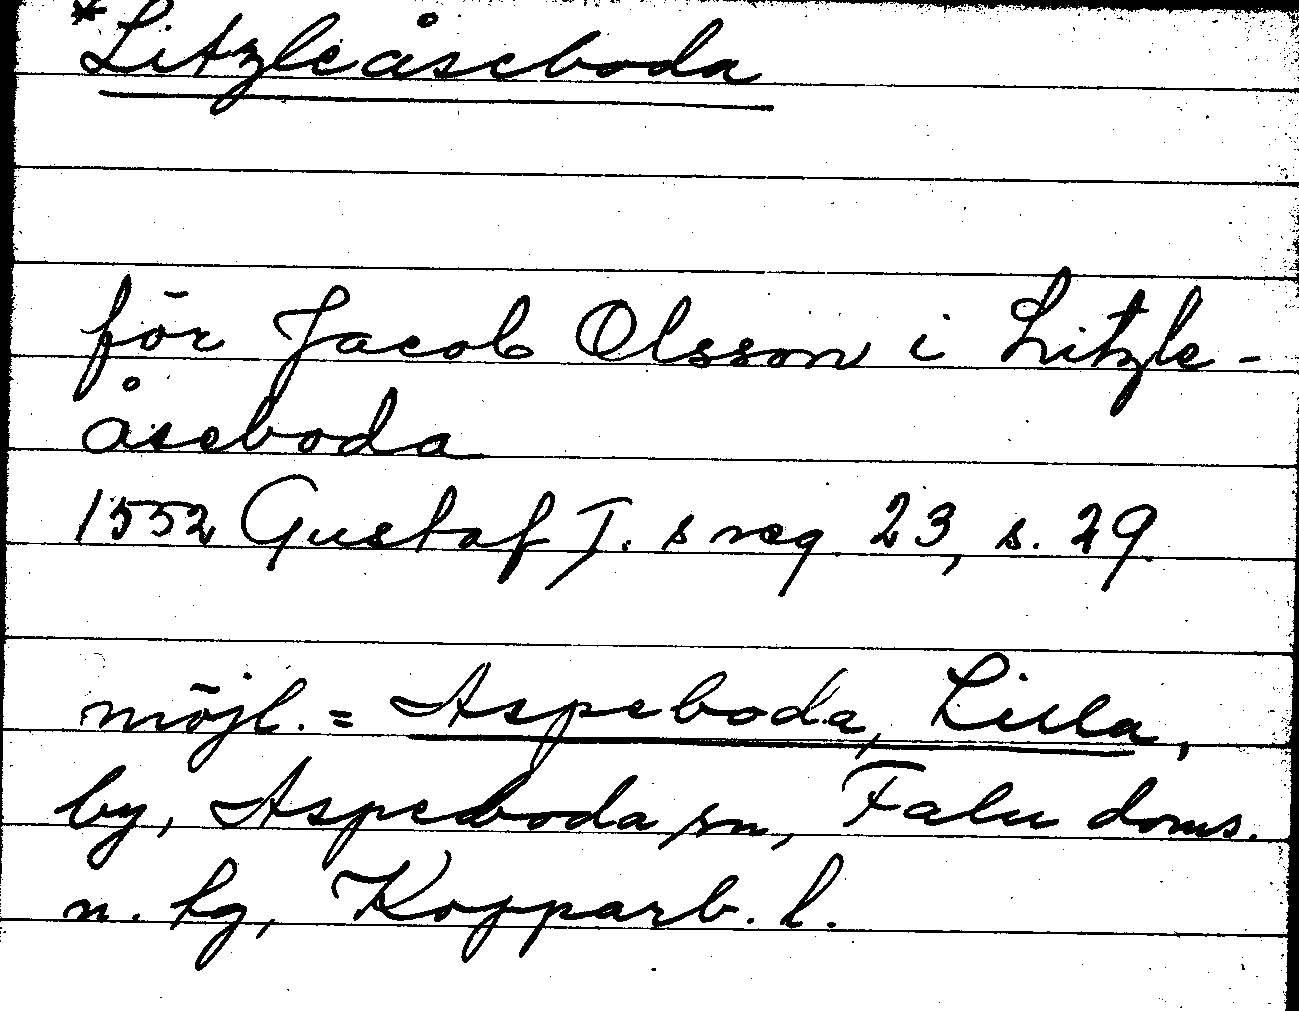 *Litzleåseboda
för Jacob Olsson i Litzle-
åseboda
1552 Gustaf I. s reg. 23, s. 29.
möjl. = Aspeboda, Lilla,
by, Aspeboda sn, Falu doms.
n. tg, Kopparb. l.